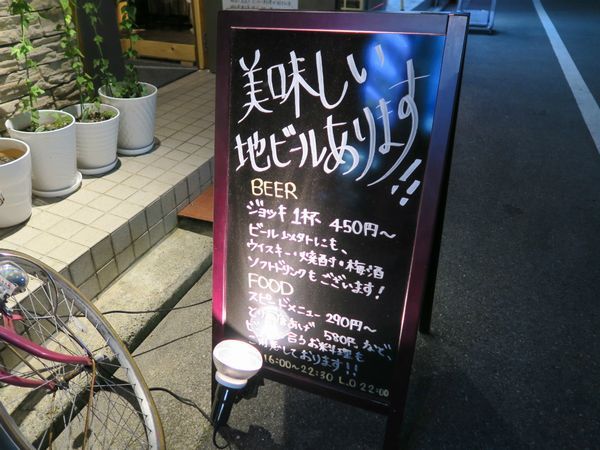 美味しい
地ビールあります!!
BEER
ジョッキ1杯 450円〜
ビール以外にも、
ウイスキー・焼酎・梅酒
ソフトドリンクもございます!
FOOD
スピードメニュー 290円〜
とり 揚げ 580円など、
合うお料理も
ご用意しております!!
16:00〜22:30 L.O 22:00